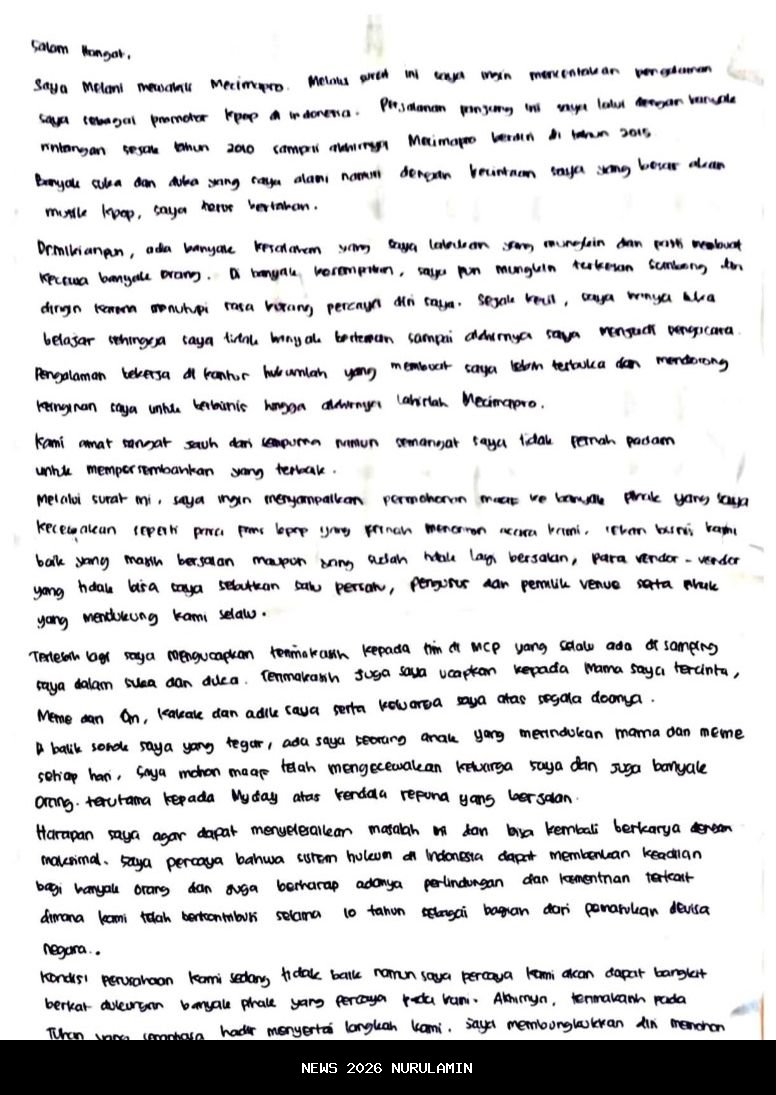 Salam Hangat,
Saya Melani mewakili Mecimapro. Melalui surat ini saya ingin menceritakan pengalaman
saya sebagai promotor kpop di Indonesia. Perjalanan panjang ini saya lalui dengan banyak
rintangan sejak tahun 2010 sampai akhirnya Mecimapro berdiri di tahun 2015
Banyak suka dan duka yang saya alami namun dengan kecintaan saya yang besar akan
musik kpop, saya terus bertahan.
Demikianpun, ada banyak kesalahan yang saya lakukan yang mungkin dan pasti membuat
kecewa banyak orang. Di banyak kesempatan, saya pun mungkin terkesan sombong dan
dingin karena menutupi rasa kurang percaya diri saya. Sejak kecil, saya hanya suka
belajar sehingga saya tidak banyak berteman sampai akhirnya saya menjadi pengacara.
Pengalaman bekerja di kantor hukumlah yang membuat saya lebih terbuka dan mendorong
keinginan saya untuk berbisnis hingga akhirnya lahirlah Mecimapro.
Kami amat sangat jauh dari sempurna namun semangat saya tidak pernah padam
untuk mempersembahkan yang terbaik.
Melalui surat ini, saya ingin menyampaikan permohonan maaf ke banyak pihak yang saya
kecewakan seperti para fans kpop yang pernah menonton acara kami, rekan bisnis kami
baik yang masih berjalan maupun yang sudah tidak lagi berjalan, para vendor-vendor
yang tidak bisa saya sebutkan satu persatu, pengurus dan pemilik venue serta pihak
yang mendukung kami selalu.
Terlebih lagi saya mengucapkan terimakasih kepada tim di MCP yang selalu ada di samping
saya dalam suka dan duka. Terimakasih juga saya ucapkan kepada Mama saya tercinta,
Meme dan On, kakak dan adik saya serta keluarga saya atas segala doanya.
Di balik sosok saya yang tegar, ada saya seorang anak yang merindukan mama dan meme
setiap hari. Saya mohon maaf telah mengecewakan keluarga saya dan juga banyak
orang. terutama kepada Myday atas kendala refund yang berjalan.
Harapan saya agar dapat menyelesaikan masalah ini dan bisa kembali berkarya dengan
maksimal. Saya percaya bahwa sistem hukum di Indonesia dapat memberikan keadilan
bagi banyak orang dan juga berharap adanya perlindungan dari kementrian terkait
dimana kami telah berkontribusi selama 10 tahun sebagai bagian dari pemasukan devisa
negara..
Kondisi perusahaan kami sedang tidak baik namun saya percaya kami akan dapat bangkit
berkat dukungan banyak pihak yang percaya pada kami. Akhirnya, terimakasih pada
Tuhan yang senantiasa hadir menyertai langkah kami. Saya membungkukkan diri memohon
NEWS 2026 NURULAMIN